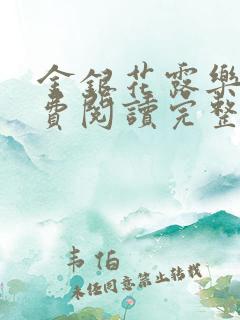 金銀花露樂
費閱讀完整
韦伯
未经同意禁止转载